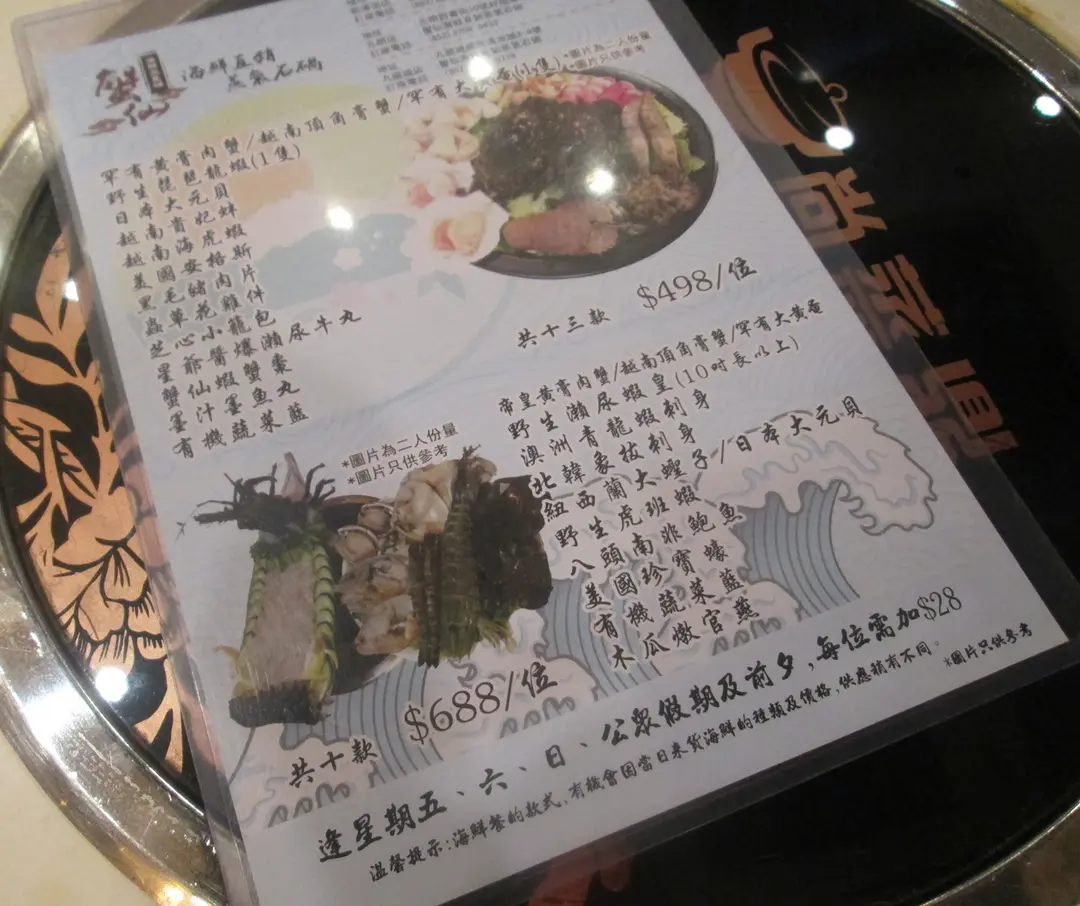 蟹仙
海鮮直銷
蒸氣石鍋
*圖片為二人份量
*圖片只供參考
罕有黃膏肉蟹/越南頂角膏蟹/罕有大黃蚕(小隻)
野生琵琶龍蝦(1隻)
日本大元貝
越南貴妃蚌
越南海虎蝦
美國安格斯
黑毛豬肉片
蟲草花雞件
芝心小籠包
星爺醬爆瀨尿牛丸
蟹仙蝦蟹棗
墨汁墨魚丸
有機蔬菜籃
共十三款
$498/位
帝皇黃膏肉蟹/越南頂角膏蟹/罕有大黃蚕
野生瀨尿蝦皇(10吋長以上)
澳洲青龍蝦刺身
北韓象拔刺身
紐西蘭大蟶子/日本大元貝
野生虎班蝦
八頭南非鮑魚
美國珍寶蠔
有機蔬菜籃
木瓜燉官燕
*圖片為二人份量
*圖片只供參考
共十款
$688/位
逢星期五、六、日、公眾假期及前夕,每位需加$28
溫馨提示:海鮮餐的款式,有機會因當日來貨海鮮的種類及價格,供應稍有不同。
*圖片只供參考